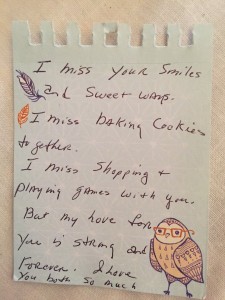 I miss your smiles
and sweet ways.
I miss baking cookies
together.
I miss shopping +
playing games with you.
But my love for
you is strong and
forever. I love
you both so much